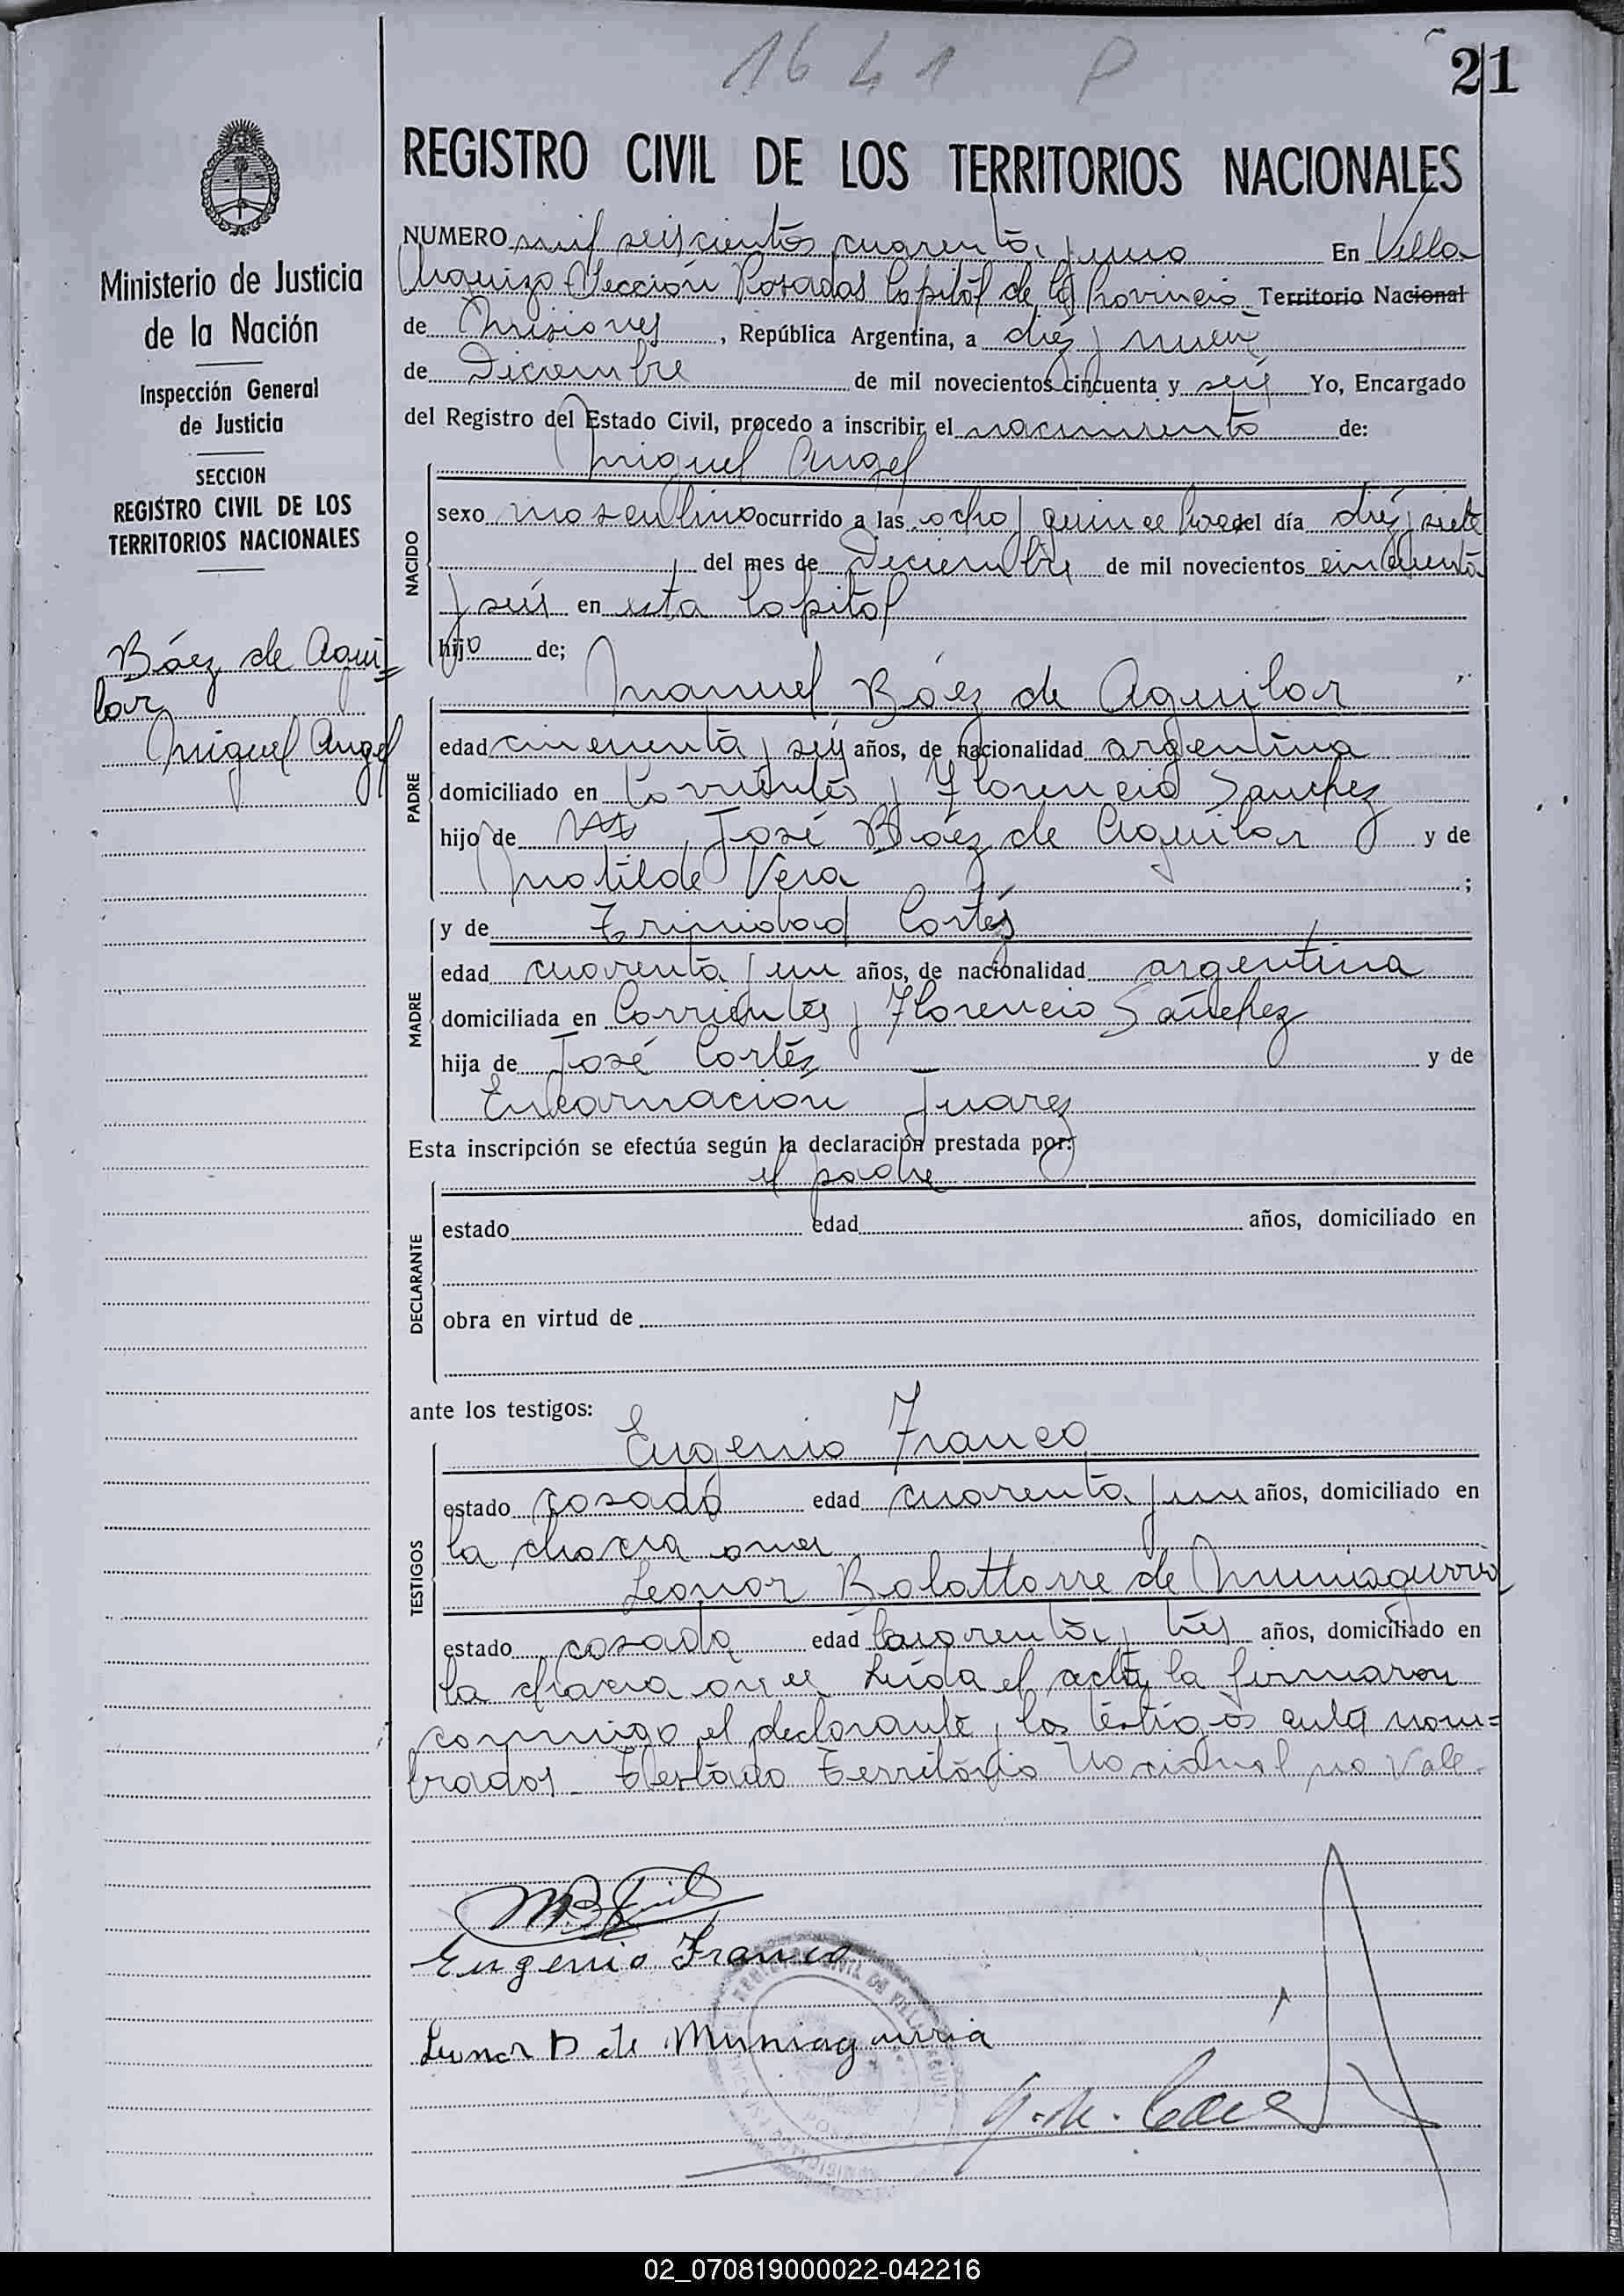 1641 P
21
Ministerio de Justicia
de la Nación
Inspección General
de Justicia
SECCION
REGISTRO CIVIL DE LOS
TERRITORIOS NACIONALES
Báez de Agui=
lar
Miguel Angel
REGISTRO CIVIL DE LOS TERRITORIOS NACIONALES
NUMERO mil seiscientos cuarenta y uno En Villa
Urquiza Sección Posadas Capital de la Provincia Territorio Nacional
de Misiones, República Argentina, a diez y nueve
de Diciembre de mil novecientos cincuenta y seis Yo, Encargado
del Registro del Estado Civil, procedo a inscribir el nacimiento de:
Miguel Angel
NACIDO
sexo masculino ocurrido a las ocho y quince horas del día diez y siete
del mes de Diciembre de mil novecientos cincuenta
y seis en esta Capital
hijo de;
Manuel Báez de Aguilar
PADRE
edad cincuenta y seis años, de nacionalidad argentina
domiciliado en Corrientes y Florencio Sanchez
hijo de José Báez de Aguilar y de
Matilde Vera ;
y de Trinidad Cortés
MADRE
edad cuarenta y un años, de nacionalidad argentina
domiciliada en Corrientes y Florencio Sánchez
hija de José Cortés y de
Encarnación Juarez
Esta inscripción se efectúa según la declaración prestada por:
el padre
DECLARANTE
estado edad años, domiciliado en
obra en virtud de
ante los testigos:
Eugenio Franco
TESTIGOS
estado casado edad cuarenta y un años, domiciliado en
la chacra once
Leonor Balattorre de Muniagurria
estado casada edad cuarenta y tres años, domiciliado en
la chacra once Leída el acta, la firmaron
conmigo el declarante y los testigos antes nom=
brados. Testado Territorio Nacional no Vale.
Eugenio Franco
Leonor B de Muniagurria
REGISTRO CIVIL DE VILLA URQUIZA
02_070819000022-042216